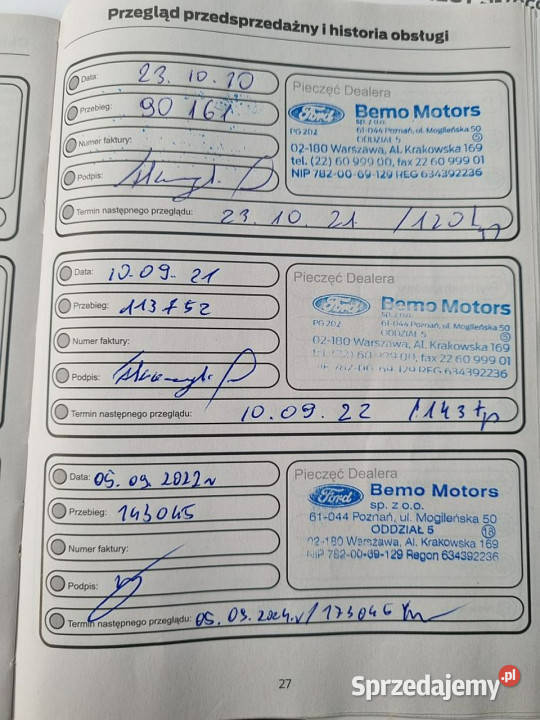 Przegląd przedsprzedażny i historia obsługi
Data: 23.10.20
Przebieg: 90 161
Numer faktury:
Podpis:
Termin następnego przeglądu: 23.10.21 /120
Pieczęć Dealera
Ford Bemo Motors
sp. z o.o.
PG 202 61-044 Poznań, ul. Mogileńska 50
ODDZIAŁ 5
02-180 Warszawa, Al. Krakowska 169
tel. (22) 60 999 00, fax 22 60 999 01
NIP 782-00-69-129 REG 634392236
Data: 10.09.21
Przebieg: 113752
Numer faktury:
Podpis:
Termin następnego przeglądu: 10.09.22 /143
Pieczęć Dealera
Ford Bemo Motors
sp. z o.o.
PG 202 61-044 Poznań, ul. Mogileńska 50
ODDZIAŁ 5
02-180 Warszawa, Al. Krakowska 169
tel. (22) 60 999 00, fax 22 60 999 01
782-00-69-129 REG 634392236
Data: 05.09.2022
Przebieg: 143045
Numer faktury:
Podpis:
Termin następnego przeglądu: 05.09.2024 / 173045
Pieczęć Dealera
Ford Bemo Motors
sp. z o.o.
61-044 Poznań, ul. Mogileńska 50
ODDZIAŁ 5 18
02-180 Warszawa, Al. Krakowska 169
NIP 782-00-69-129 Regon 634392236
27
Sprzedajemy.pl